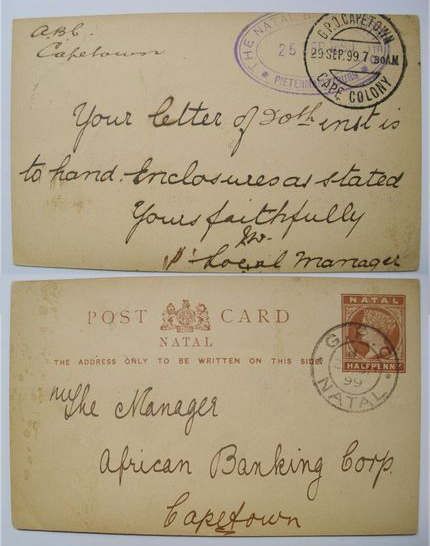 ABC.
Capetown
THE NATAL
25
PIETERM
G.P.O. CAPETOWN
29 SEP. 99. 7 30 AM
CAPE COLONY
Your letter of 20th inst is
to hand. Enclosures as stated
Yours faithfully
Local Manager
POST CARD
NATAL
THE ADDRESS ONLY TO BE WRITTEN ON THIS SIDE.
NATAL
HALFPENNY
99
NATAL
The Manager
African Banking Corp.
Capetown